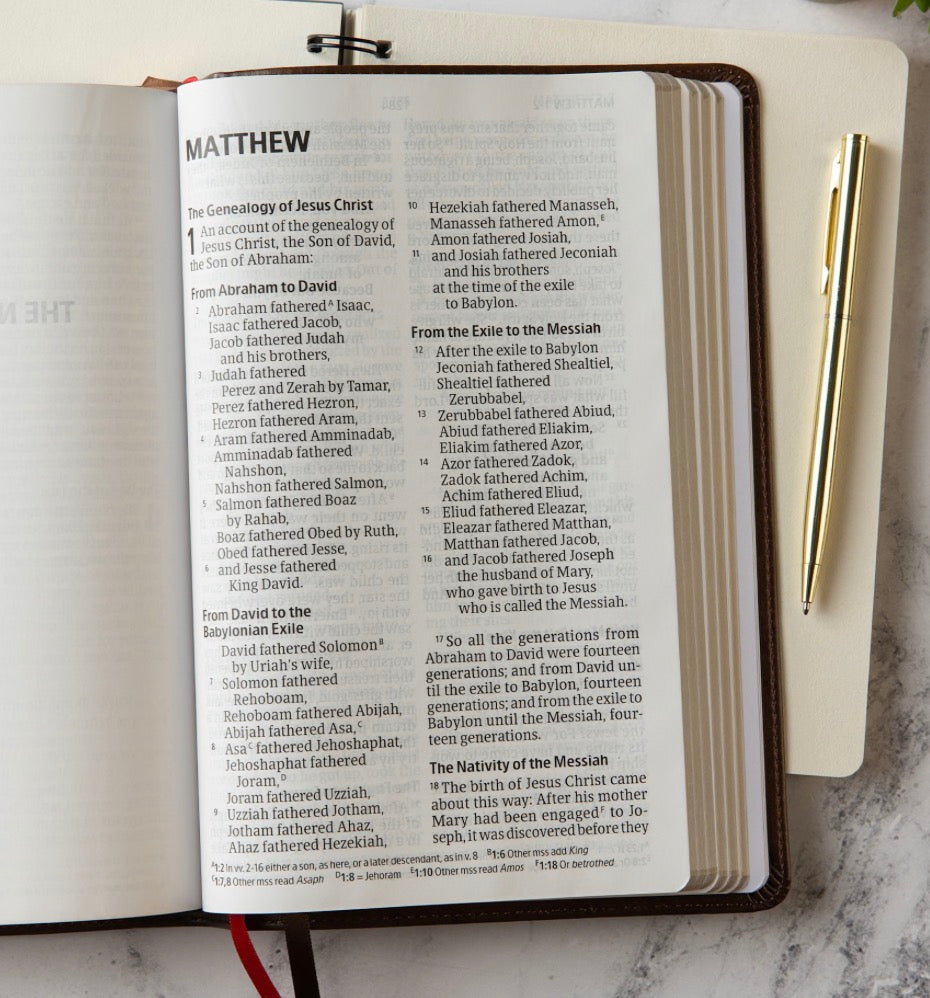 MATTHEW
The Genealogy of Jesus Christ
1 An account of the genealogy of
Jesus Christ, the Son of David,
the Son of Abraham:
From Abraham to David
2 Abraham fathered A Isaac,
Isaac fathered Jacob,
Jacob fathered Judah
and his brothers,
3 Judah fathered
Perez and Zerah by Tamar,
Perez fathered Hezron,
Hezron fathered Aram,
4 Aram fathered Amminadab,
Amminadab fathered
Nahshon,
Nahshon fathered Salmon,
5 Salmon fathered Boaz
by Rahab,
Boaz fathered Obed by Ruth,
Obed fathered Jesse,
6 and Jesse fathered
King David.
From David to the
Babylonian Exile
David fathered Solomon B
by Uriah's wife,
7 Solomon fathered
Rehoboam,
Rehoboam fathered Abijah,
Abijah fathered Asa, C
8 Asa C fathered Jehoshaphat,
Jehoshaphat fathered
Joram, D
Joram fathered Uzziah,
9 Uzziah fathered Jotham,
Jotham fathered Ahaz,
Ahaz fathered Hezekiah,
10 Hezekiah fathered Manasseh,
Manasseh fathered Amon, E
Amon fathered Josiah,
11 and Josiah fathered Jeconiah
and his brothers
at the time of the exile
to Babylon.
From the Exile to the Messiah
12 After the exile to Babylon
Jeconiah fathered Shealtiel,
Shealtiel fathered
Zerubbabel,
13 Zerubbabel fathered Abiud,
Abiud fathered Eliakim,
Eliakim fathered Azor,
14 Azor fathered Zadok,
Zadok fathered Achim,
Achim fathered Eliud,
15 Eliud fathered Eleazar,
Eleazar fathered Matthan,
Matthan fathered Jacob,
16 and Jacob fathered Joseph
the husband of Mary,
who gave birth to Jesus
who is called the Messiah.
17 So all the generations from
Abraham to David were fourteen
generations; and from David un-
til the exile to Babylon, fourteen
generations; and from the exile to
Babylon until the Messiah, four-
teen generations.
The Nativity of the Messiah
18 The birth of Jesus Christ came
about this way: After his mother
Mary had been engaged F to Jo-
seph, it was discovered before they
A 1:2 In vv. 2-16 either a son, as here, or a later descendant, as in v. 8 B 1:6 Other mss add King
C 1:7,8 Other mss read Asaph D 1:8 = Jehoram E 1:10 Other mss read Amos F 1:18 Or betrothed